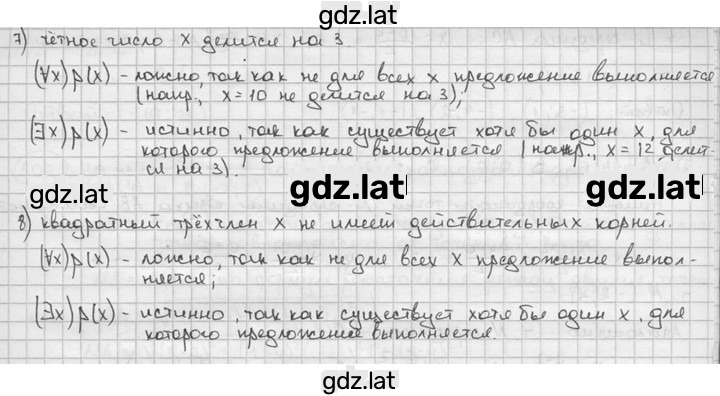 gdz.lat
7) чётное число x делится на 3
(∀x)p(x) – ложно, так как не для всех x предложение выполняется
(напр., x=10 не делится на 3);
(∃x)p(x) – истинно, так как существует хотя бы один x, для
которого предложение выполняется (напр., x=12 делит-
ся на 3).
gdz.lat
gdz.lat
8) квадратный трёхчлен x не имеет действительных корней.
(∀x)p(x) – ложно, так как не для всех x предложение выпол-
няется;
(∃x)p(x) – истинно, так как существует хотя бы один x, для
которого предложение выполняется.
gdz.lat